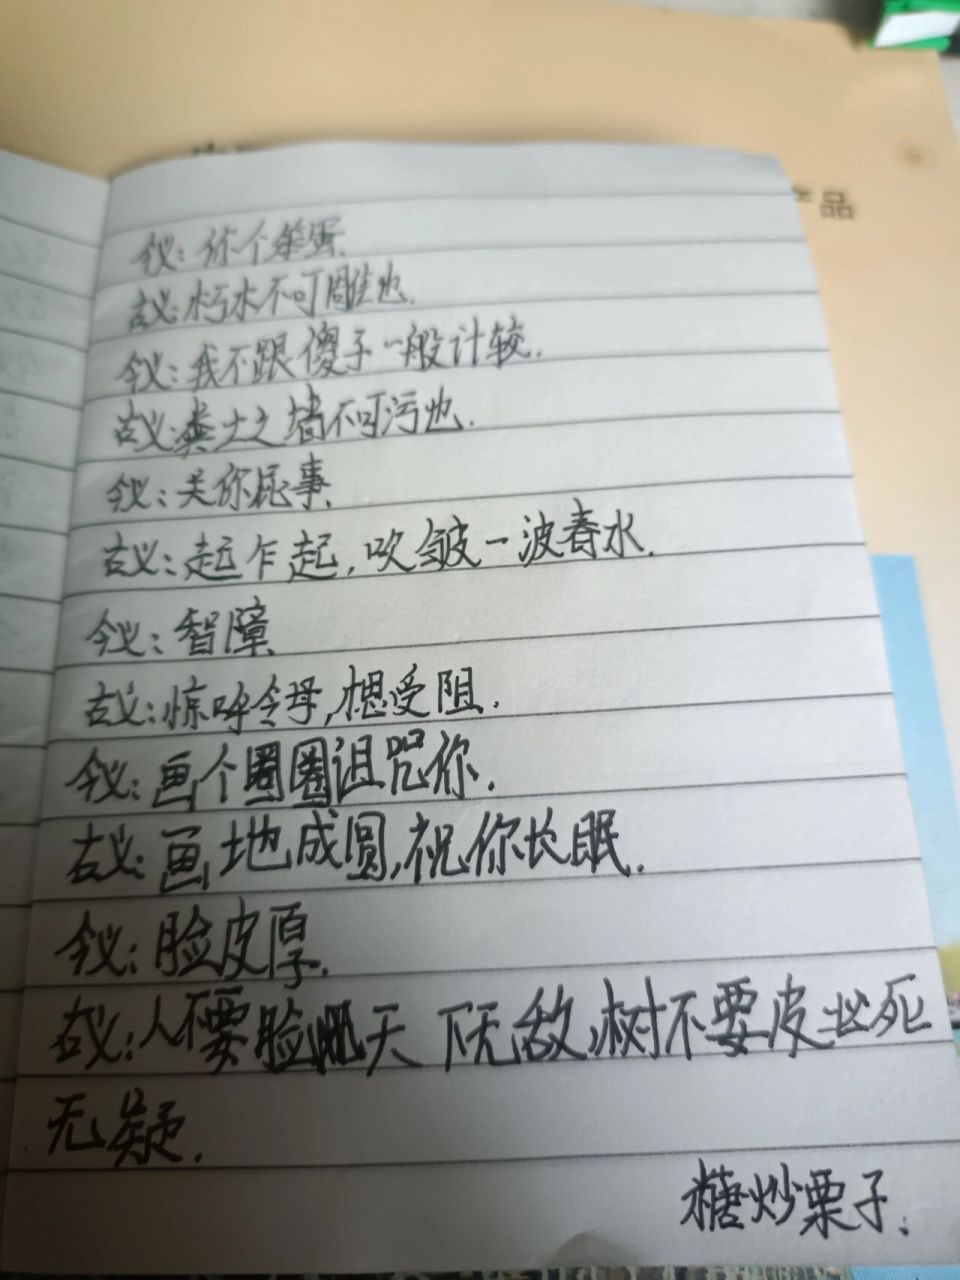 产品
今义:你个笨蛋.
古义:朽木不可雕也.
今义:我不跟傻子一般计较.
古义:粪土之墙不可污也.
今义:关你屁事.
古义:起乍起,吹皱一波春水.
今义:智障
古义:惊呼令母,想受阻.
今义:画个圈圈诅咒你.
古义:画地成圆,祝你长眠.
今义:脸皮厚.
古义:人不要脸 天下无敌,树不要皮必死
无疑.
糖炒栗子.